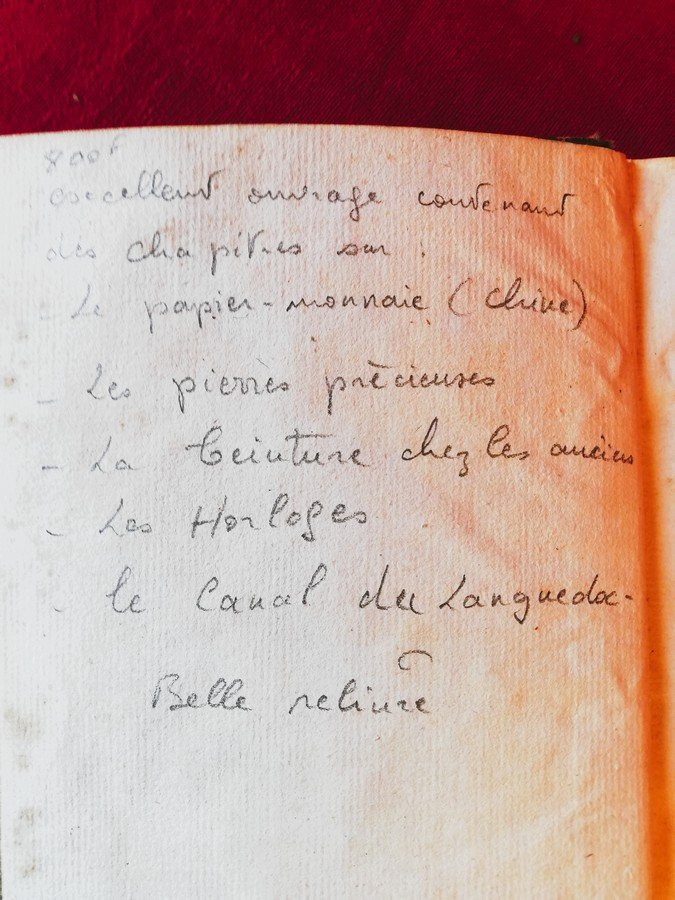 800f
excellent ouvrage contenant
des chapitres sur :
- Le papier-monnaie (Chine)
- Les pierres précieuses
- La teinture chez les anciens
- Les Horloges
- le Canal du Languedoc-
Belle reliure